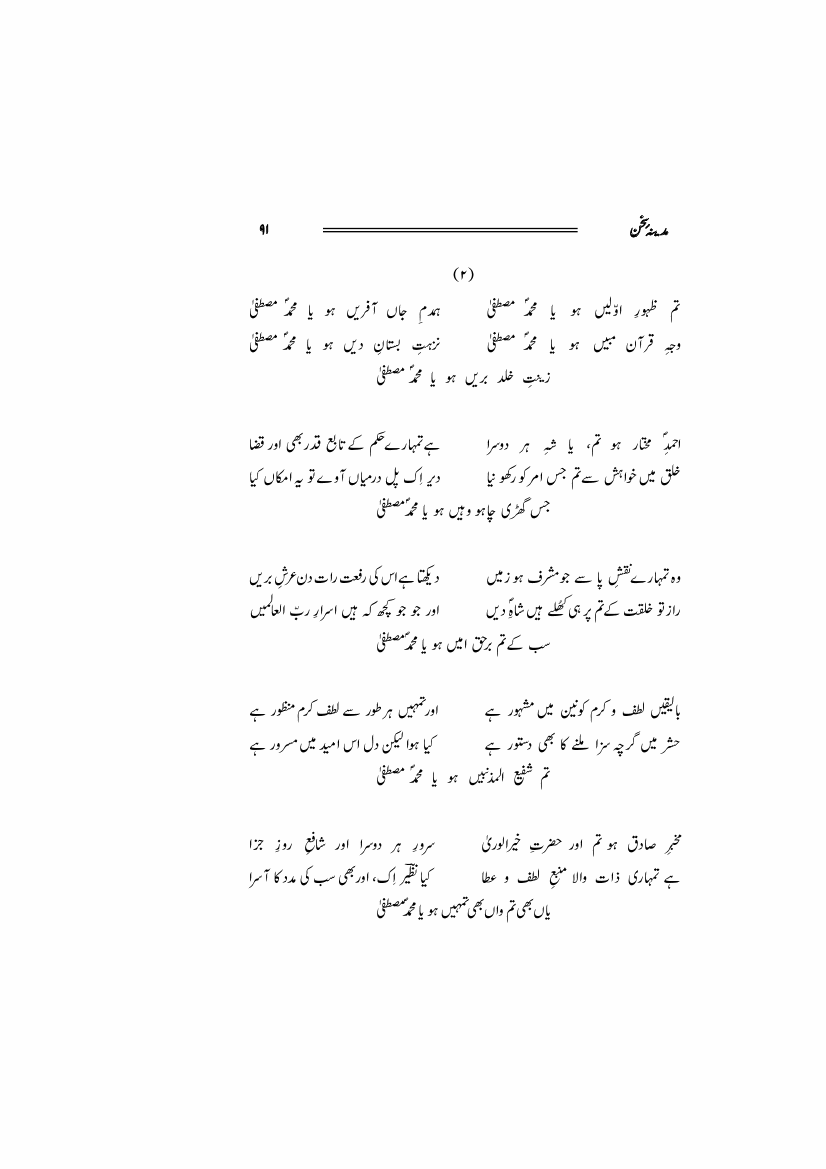 مدینہ سخن ۹۱
(۲)
تم ظہورِ اوّلیں ہو یا محمدؐ مصطفیٰ ہمدمِ جاں آفریں ہو یا محمدؐ مصطفیٰ
وجہِ قرآن مبیں ہو یا محمدؐ مصطفیٰ نزہتِ بستانِ دیں ہو یا محمدؐ مصطفیٰ
زینتِ خلد بریں ہو یا محمدؐ مصطفیٰ
احمدِؐ مختار ہو تم، یا شہِ ہر دوسرا ہے تمہارے حکم کے تابع قدر بھی اور قضا
خلق میں خواہش سے تم جس امر کو رکھو نیا دیر اِک پل درمیاں آوے تو یہ امکاں کیا
جس گھڑی چاہو وہیں ہو یا محمدؐ مصطفیٰ
وہ تمہارے نقشِ پا سے جو مشرف ہو زمیں دیکھتا ہے اس کی رفعت رات دن عرشِ بریں
راز تو خلقت کے تم پر ہی کُھلے ہیں شاہِؐ دیں اور جو جو کچھ کہ ہیں اسرارِ ربّ العالمیں
سب کے تم برحق امیں ہو یا محمدؐ مصطفیٰ
بالیقیں لطف و کرم کونین میں مشہور ہے اور تمہیں ہر طور سے لطف کرم منظور ہے
حشر میں گرچہ سزا ملنے کا بھی دستور ہے کیا ہوا لیکن دل اس امید میں مسرور ہے
تم شفیع المذنبیں ہو یا محمدؐ مصطفیٰ
مخبرِ صادق ہو تم اور حضرتِ خیرالوریٰ سرورِ ہر دوسرا اور شافعِ روزِ جزا
ہے تمہاری ذات والا منبعِ لطف و عطا کیا نظیرؔ اِک، اور بھی سب کی مدد کا آسرا
یاں بھی تم واں بھی تمہیں ہو یا محمدؐ مصطفیٰ